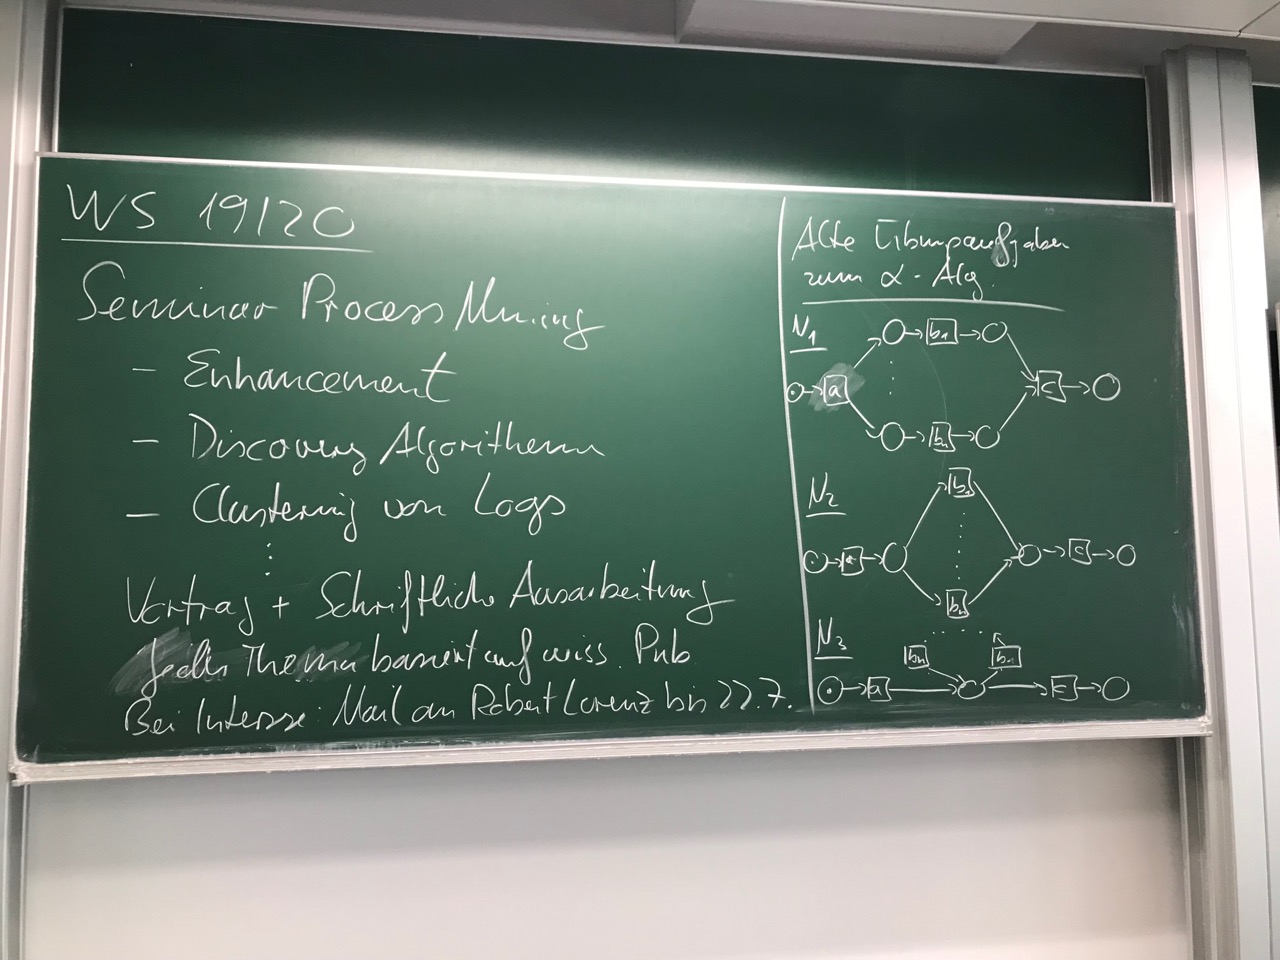 WS 19/20
Seminar Process Mining
- Enhancement
- Discovery Algorithmen
- Clustering von Logs
⋮
Vortrag + Schriftliche Ausarbeitung
Jedes Thema basiert auf wiss. Pub
Bei Interesse: Mail an Robert Lorenz bis 22.7.
Alte Übungsaufgaben
zum α-Alg.
N1
b1
a
c
bn
N2
b1
a
c
bn
N3
bn
b1
a
c